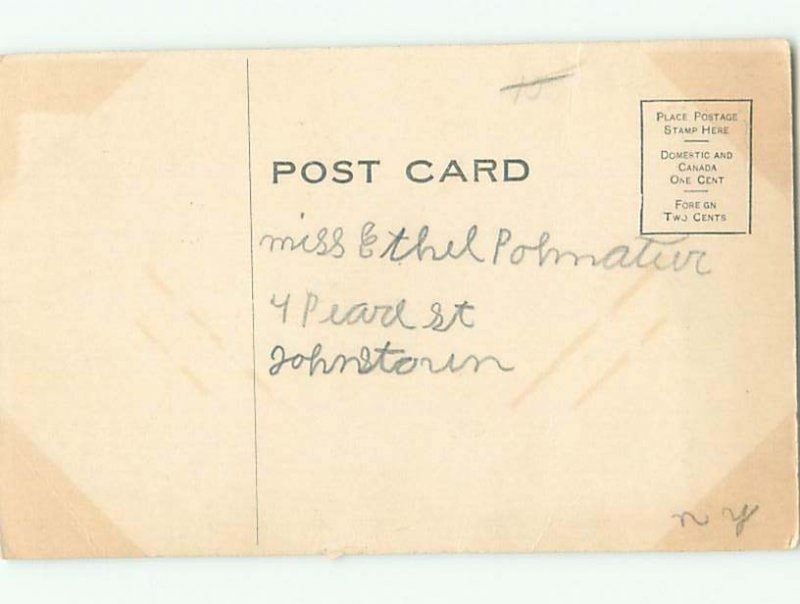 POST CARD
PLACE POSTAGE
STAMP HERE
DOMESTIC AND
CANADA
ONE CENT
FOREIGN
TWO CENTS
miss Ethel Polmatier
4 Pearl st
Johnstown
n y